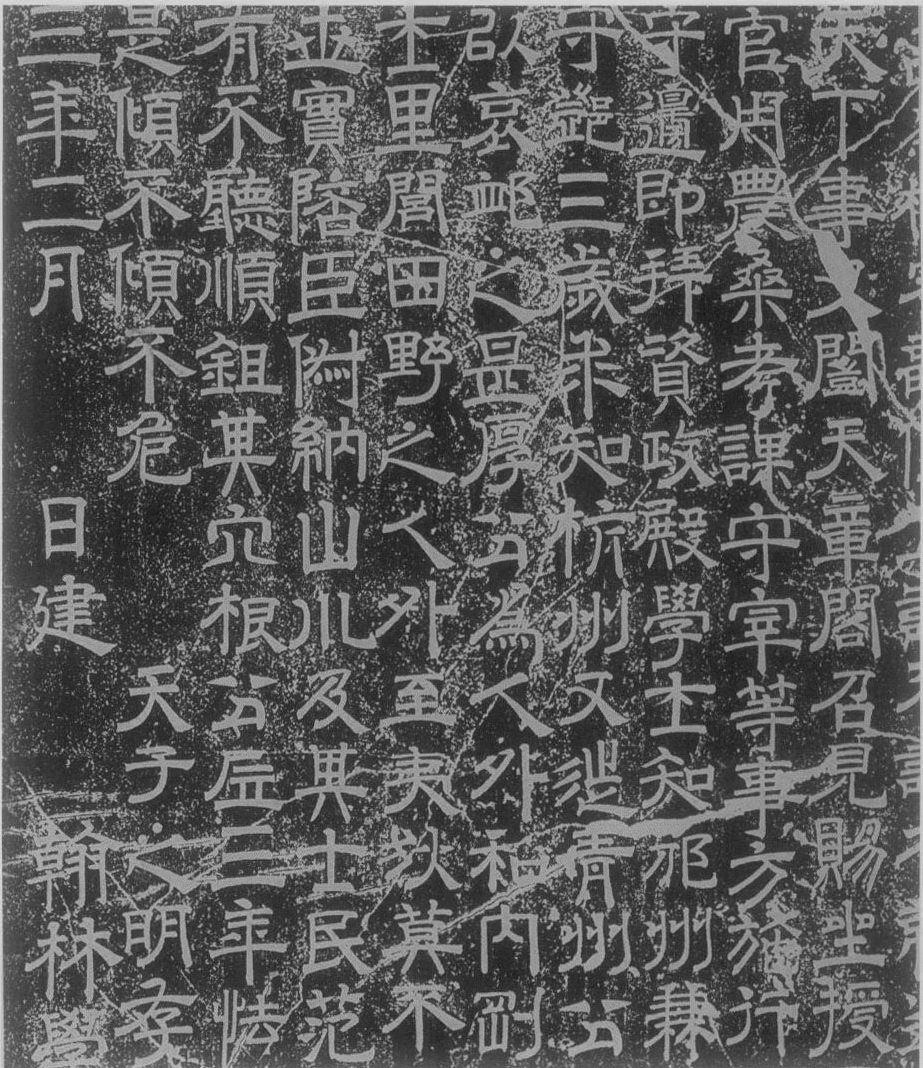 天下事又開天章閣召見賜坐授
官用農桑考課守宰等事方施行
守邊即拜資政殿學士知邠州兼
守鄧三歲求知杭州又徙青州公
以哀卹之是厚公為人外和內剛
士里閭田野之人外至夷狄莫不
世實陪臣俶納山川及其士民范
有不聽順鉏其穴根公居三年怯
是傾不傾不危 天子之明存
三年二月 日建 翰林學